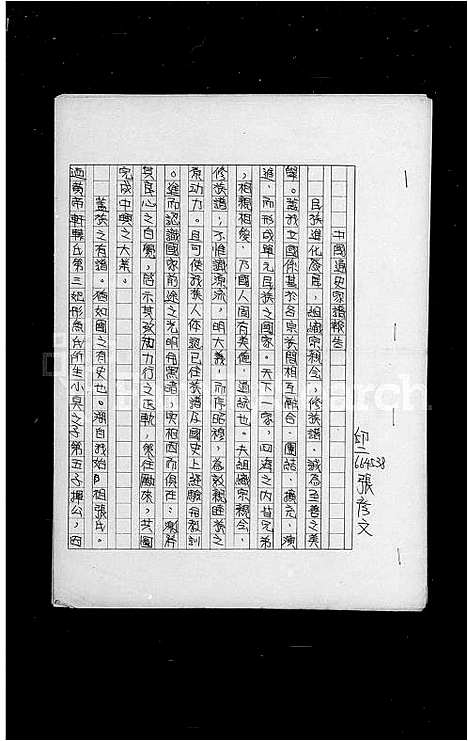 邱二
664538
張彥文
中國通史家譜報告
民族進化發展，組織宗親会，修族譜，誠為至善之美
舉。蓋我立國係基於各宗族間相互融合，團結，擴充，演
進，而形成單元民族之國家。天下一家，四海之内皆兄弟
；相親相愛，乃國人固有美德，道統也。夫組織宗親会，
修族譜；不惟識源流，明大義，而序昭穆，為敦親睦族之
原動力。且可使我族人体認已往族譜及國史上經驗与教訓
。進而認識國家前途之光明与黑暗，
其良心之自覺，啓示其致知力行之正軌，繼往開來，共圖
完成中興之大業。
蓋族之有譜。猶如國之有史也。溯自我始祖張氏。
迺黃帝軒轅氏第三妃彤魚氏所生小昊之子第五子揮公，因